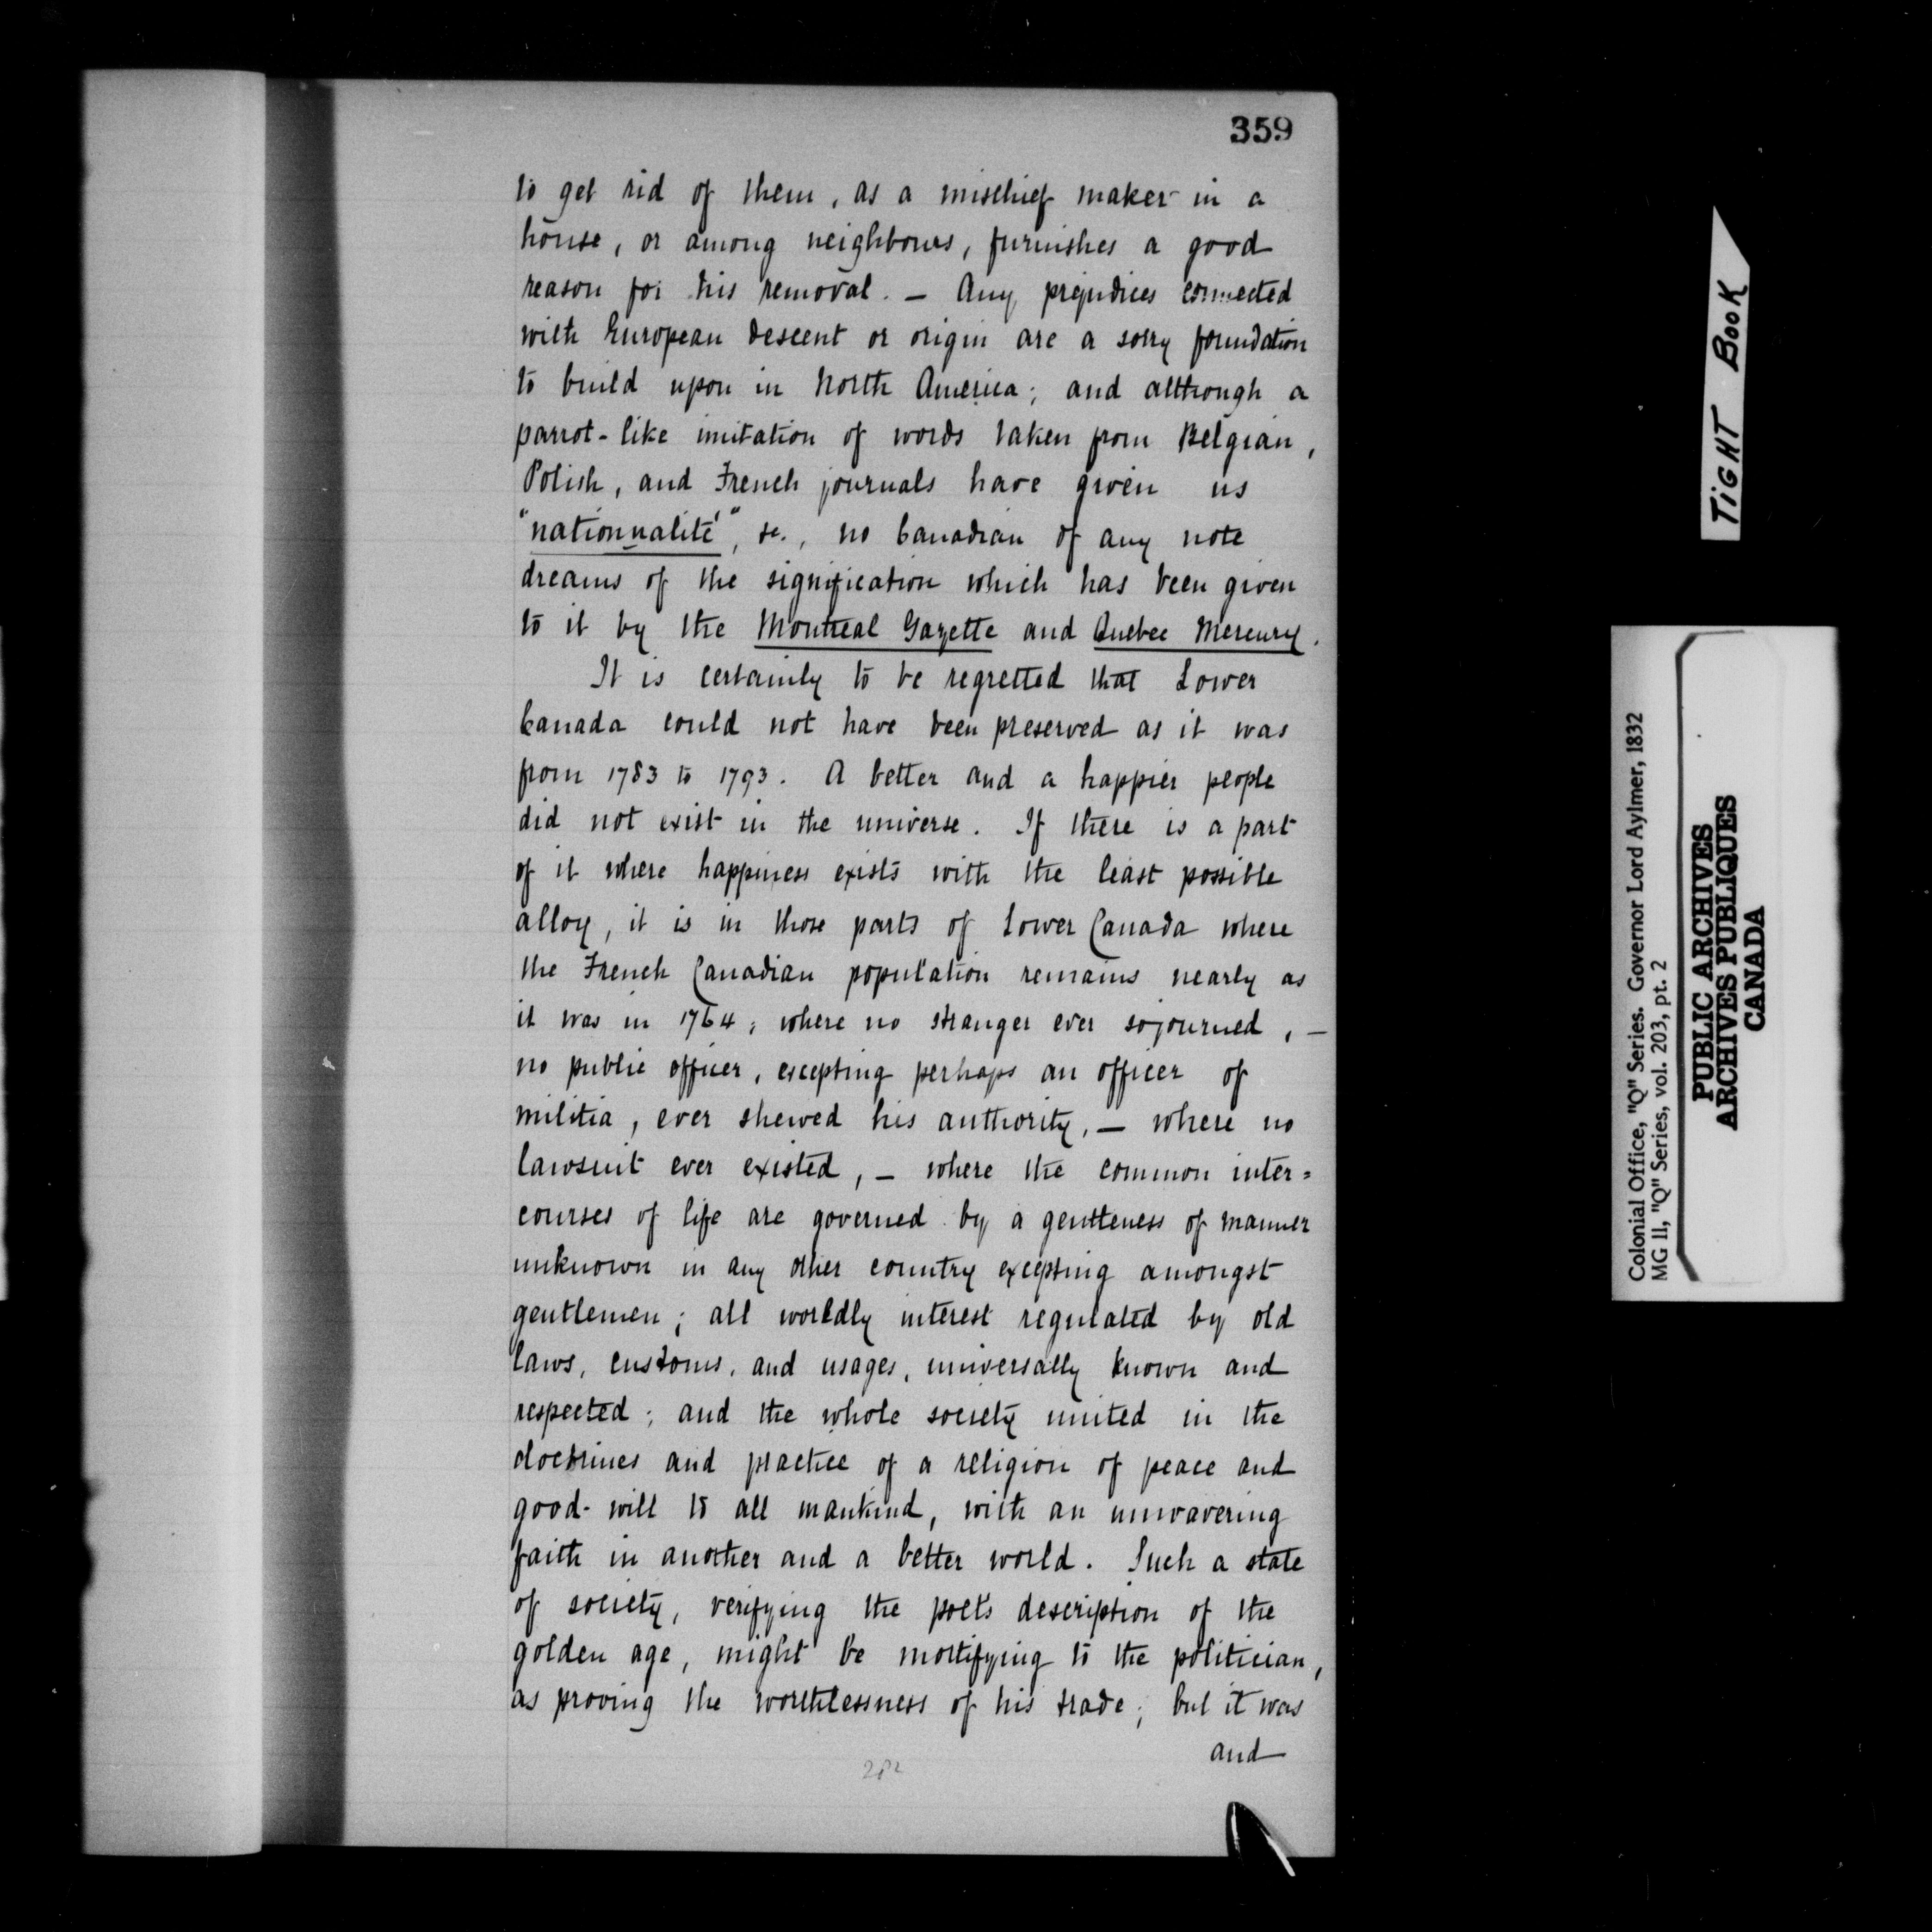 359
to get rid of them, as a mischief maker in a
house, or among neighbours, furnishes a good
reason for his removal. — Any prejudices connected
with European descent or origin are a sorry foundation
to build upon in North America; and although a
parrot-like imitation of words taken from Belgian,
Polish, and French journals have given us
"nationnalité", &c., no Canadian of any note
dreams of the signification which has been given
to it by the Montreal Gazette and Quebec Mercury.
It is certainly to be regretted that Lower
Canada could not have been preserved as it was
from 1783 to 1793. A better and a happier people
did not exist in the universe. If there is a part
of it where happiness exists with the least possible
alloy, it is in those parts of Lower Canada where
the French Canadian population remains nearly as
it was in 1764; where no stranger ever sojourned, —
no public officer, excepting perhaps an officer of
militia, ever shewed his authority, — where no
lawsuit ever existed, — where the common inter=
courses of life are governed by a gentleness of manner
unknown in any other country excepting amongst
gentlemen; all worldly interest regulated by old
laws, customs, and usages, universally known and
respected; and the whole society united in the
doctrines and practice of a religion of peace and
good-will to all mankind, with an unwavering
faith in another and a better world. Such a state
of society, verifying the poet's description of the
golden age, might be mortifying to the politician,
as proving the worthlessness of his trade; but it was
and
TIGHT BOOK
Colonial Office, "Q" Series. Governor Lord Aylmer, 1832
MG 11, "Q" Series, vol. 203, pt. 2
PUBLIC ARCHIVES
ARCHIVES PUBLIQUES
CANADA